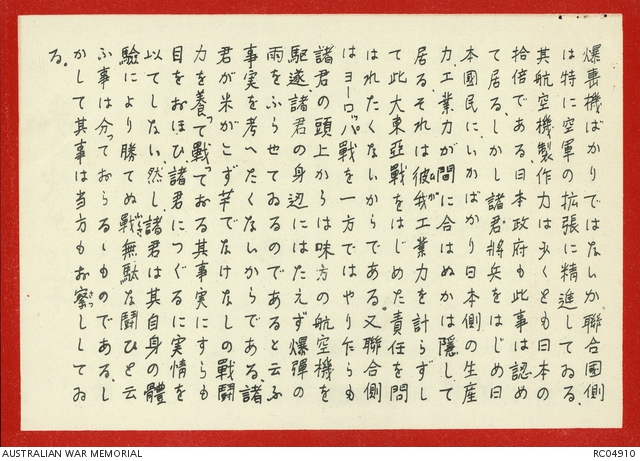 爆裏機ばかりではないか聯合國側
は特に空軍の拡張に精進してゐる、
其航空機製作力は少くとも日本の
拾倍である、日本政府も此事は認め
て居る、しかし諸君、將兵をはじめ日
本國民に、いかばかり日本側の生産
力、工業力が間に合はぬかは隠して
居る、それは彼我工業力を計らずし
て此大東亞戰をはじめた責任を問
はれたくないからである。又聯合側
はヨーロッパ戰を一方ではやり乍らも
諸君の頭上からは味方の航空機を
駆遂、諸君の身辺にはたえず爆彈の
雨をふらせてゐるのであると云ふ
事実を考へたくないからである、諸
君が米がこず芋でなけなしの戰鬪
力を養って戰っておる其事実にすらも
目をおほひ諸君につぐるに実情を
以てしない、然し諸君は其自身の體
驗により勝てぬ戰、無駄な鬪ひと云
ふ事は分っておらるゝものである、し
かして其事は当方もお察ししてゐ
る。
AUSTRALIAN WAR MEMORIAL
RC04910